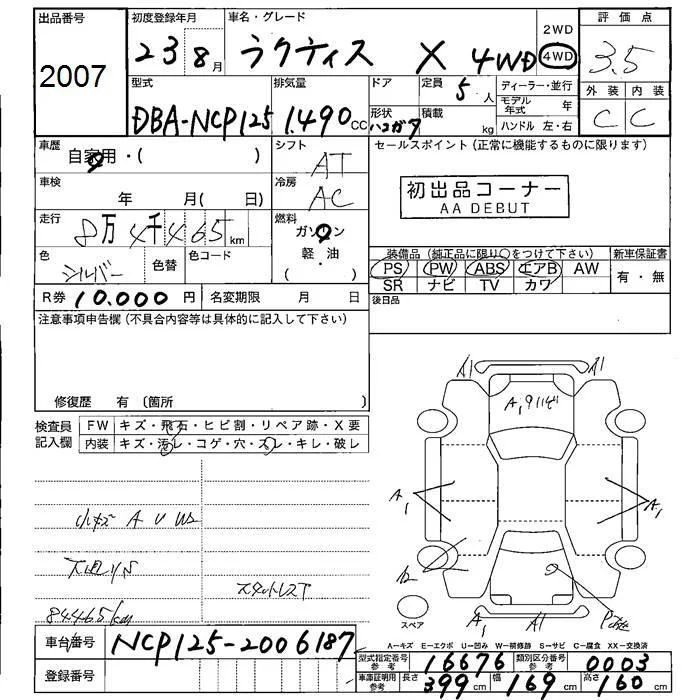 出品番号
2007
初度登録年月
23 8月
車名・グレード
ラクティス X 4WD
2WD
4WD
評価点
3.5
外装 内装
C C
型式
DBA-NCP125
排気量
1.490cc
ドア
形状
ハコガタ
定員
5人
積載
kg
ディーラー・並行
モデル年式 年
ハンドル 左・右
車歴
自家用・( )
シフト
AT
セールスポイント(正常に機能するものに限ります)
車検
年 月( 日)
冷房
AC
初出品コーナー
AA DEBUT
走行
8万4千465km
燃料
ガソリン
軽・油
( )
色
シルバー
色替
色コード
装備品(純正品に限り○をつけて下さい)
PS PW ABS エアB AW
SR ナビ TV カワ
新車保証書
有・無
R券 10.000円
名変期限 月 日
後日品
注意事項申告欄(不具合内容等は具体的に記入して下さい)
修復歴 有〔箇所 〕
検査員記入欄
FW キズ・飛石・ヒビ割・リペア跡・X要
内装 キズ・汚レ・コゲ・穴・スレ・キレ・破レ
小キズ A U W2
下廻りS
84465km
スタットレスT
A1 A1
A1
A1 A1
A1 A1
スペア
A=キズ E=エクボ U=凹み W=補修跡 S=サビ C=腐食 XX=交換済
車台番号
NCP125-2006187
登録番号
型式指定番号 参考 16676
類別区分番号 参考 0003
車庫証明用 参考
長さ 399cm 幅 169cm 高さ 160cm